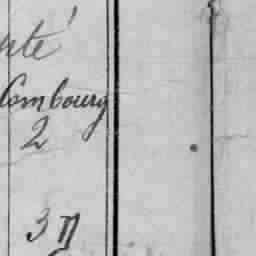 nté
Combourg
2
3